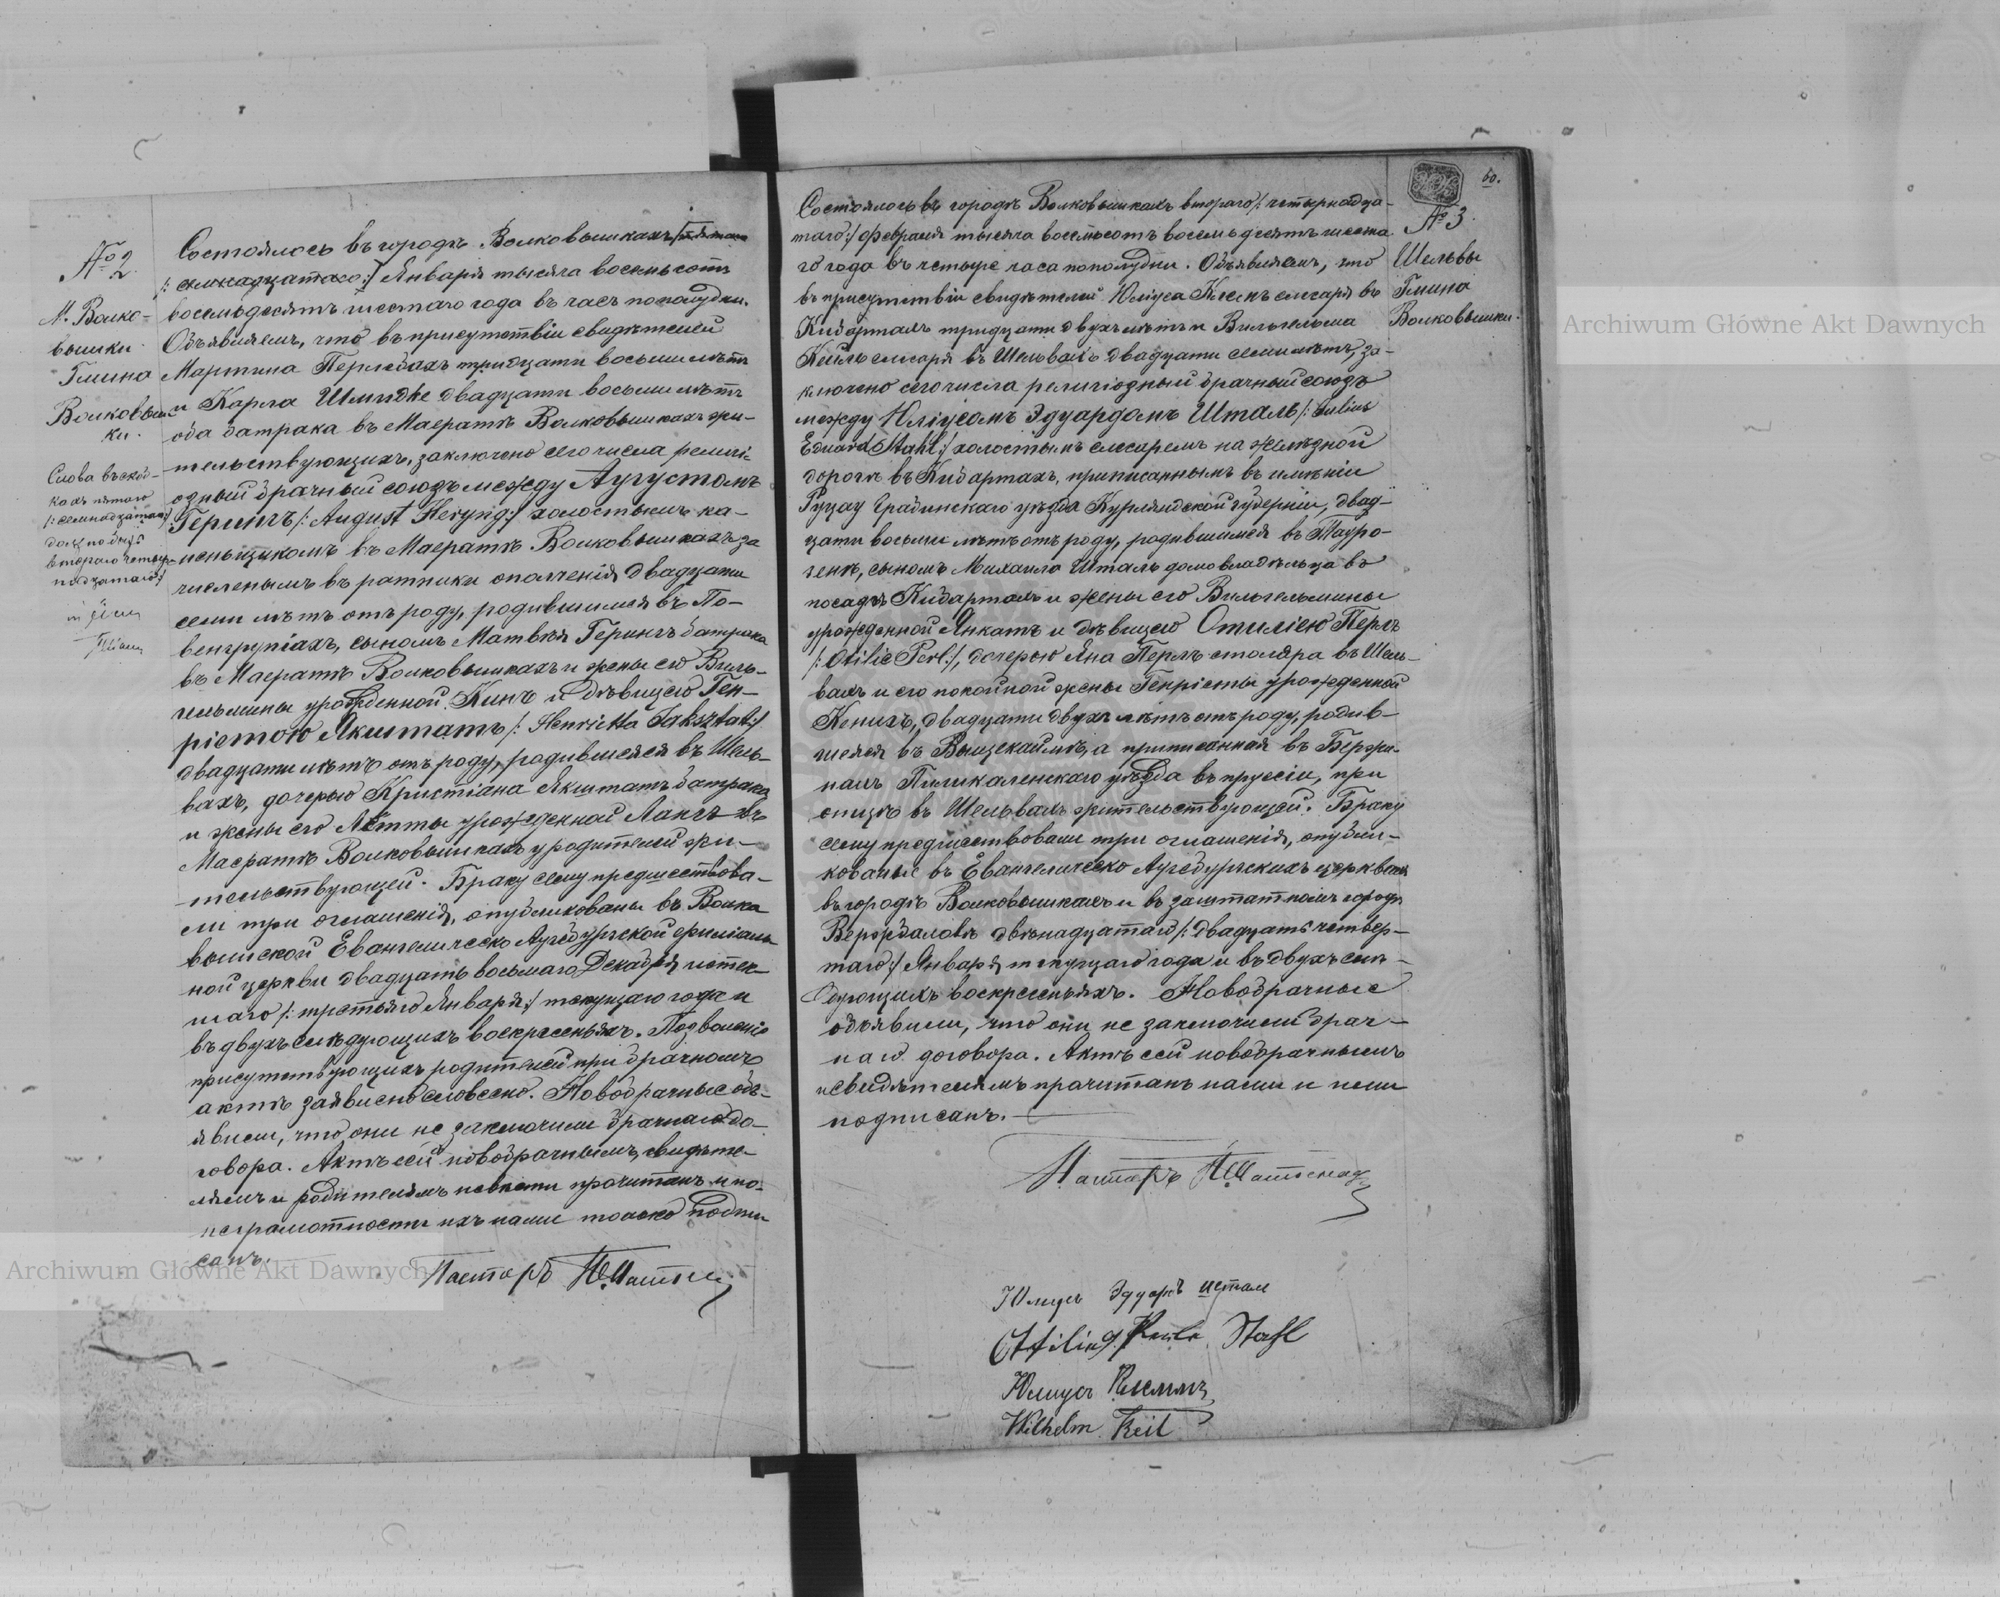 № 2
М. Волко-
вышки.
Гмина
Волковыш-
ки.
Слова въ скоб-
кахъ пятаго
/:семнадцатаго:/
втораго четыр-
надцатаго:/
Состоялось въ городѣ Волковышкахъ пятаго
/:семнадцатаго:/ Января тысяча восемьсотъ
восемьдесятъ шестаго года въ часъ пополудни.
Объявляемъ, что въ присутствіи свидѣтелей
Мартина Перлебахъ тридцати восьми лѣтъ
и Карла Шмидtе двадцати восьми лѣтъ
оба батрака въ Маератѣ Волковышкахъ жи-
тельствующихъ, заключено сего числа религі-
озный брачный союзъ между Аугустомъ
Герингъ /:August Heryng:/ холостымъ ка-
меньщикомъ въ Маератѣ Волковышкахъ за
численымъ въ ратники ополченія двадцати
семи лѣтъ отъ роду, родившимся въ По-
венгрупіахъ, сыномъ Матвѣя Герингъ батрака
въ Маератѣ Волковышкахъ и жены его Виль-
гельмины урожденной Кинъ и дѣвицею Ген-
ріетою Якштатъ /:Henrietta Jaksztat:/
двадцати лѣтъ отъ роду, родившеяся въ Шель-
вахъ, дочерью Христіана Якштатъ батрака
и жены его Лотты урожденной Лангъ въ
Маератѣ Волковышкахъ у родителей жи-
тельствующей. Браку сему предшествова-
ли три оглашенія, опубликованы въ Волко
вышской Евангелическо Аугсбургской филіаль
ной церкви двадцать восьмаго Декабря истек-
шаго /:третьяго Января:/ текущаго года и
въ двухъ слѣдующихъ воскресеньяхъ. Позволеніе
присутствующихъ родителей при брачномъ
актѣ заявлено словесно. Новобрачные объ-
явили, что они не заключили брачнаго до-
говора. Актъ сей новобрачнымъ, свидѣте-
лямъ и родителямъ прочитанъ и по
неграмотности ихъ нами только подпи
санъ.
Пасторъ
60.
№ 3.
Шельвы
Гмина
Волковышки.
Состоялось въ городѣ Волковышкахъ втораго /:четырнадца-
таго:/ Февраля тысяча восемьсотъ восемьдесятъ шеста
го года въ четыре часа пополудни. Объявляемъ, что
въ присутствіи свидѣтелей Юліуса Клемъ слесаря въ
Кибартахъ тридцати двухъ лѣтъ и Вильгельма
Кейль слесаря въ Шельвахъ двадцати семи лѣтъ, за-
ключено сего числа религіозный брачный союзъ
между Юліусомъ Эдуардомъ Шталь /:Julius
Eduard Stahl:/ холостымъ слесаремъ на желѣзной
дорогѣ въ Кибартахъ, приписаннымъ въ имѣніи
Руцау Гробинскаго уѣзда Курляндской губерніи, двад-
цати восьми лѣтъ отъ роду, родившимся въ Тауро-
генѣ, сыномъ Михаила Шталь домовладѣльца въ
посадѣ Кибартахъ и жены его Вильгельмины
урожденной Янкатъ и дѣвицею Отиліею Перль
/:Otilie Perl:/, дочерью Яна Перль столяра въ Шель-
вахъ и его покойной жены Генріеты урожденной
Кенигъ, двадцати двухъ лѣтъ отъ роду, родив-
шеяся въ а приписанная въ
Пилькаленскаго уѣзда въ Пруссіи, при
отцѣ въ Шельвахъ жительствующей. Браку
сему предшествовали три оглашенія, опубли-
кованые въ Евангелическо Аугсбургскихъ церквахъ
въ городѣ Волковышкахъ и въ заштатномъ городѣ
Вержболовѣ двѣнадцатаго /:двадцать четвер-
таго:/ Января текущаго года и въ двухъ слѣ-
дующихъ воскресеньяхъ. Новобрачные
объявили, что они не заключили брач-
наго договора. Актъ сей новобрачнымъ
и свидѣтелямъ прочитанъ нами и ними
подписанъ.
Пасторъ
Юлиусъ Эдуардъ Шталь
Ottilie Stahl
Юлиусъ Клеммъ
Wilhelm Keil
Archiwum Główne Akt Dawnych
Archiwum Główne Akt Dawnych